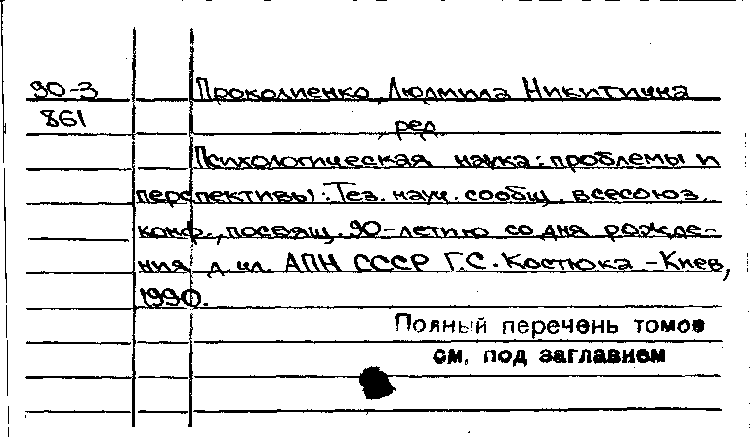 90-3 Проколиенко, Людмила Никитична
861 , ред.
Психологическая наука: проблемы и
перспективы: Тез. науч. сообщ. всесоюз.
конф., посвящ. 90-летию со дня рожде-
ния д. чл. АПН СССР Г.С. Костюка -Киев,
1990.
Полный перечень томов
см. под заглавием